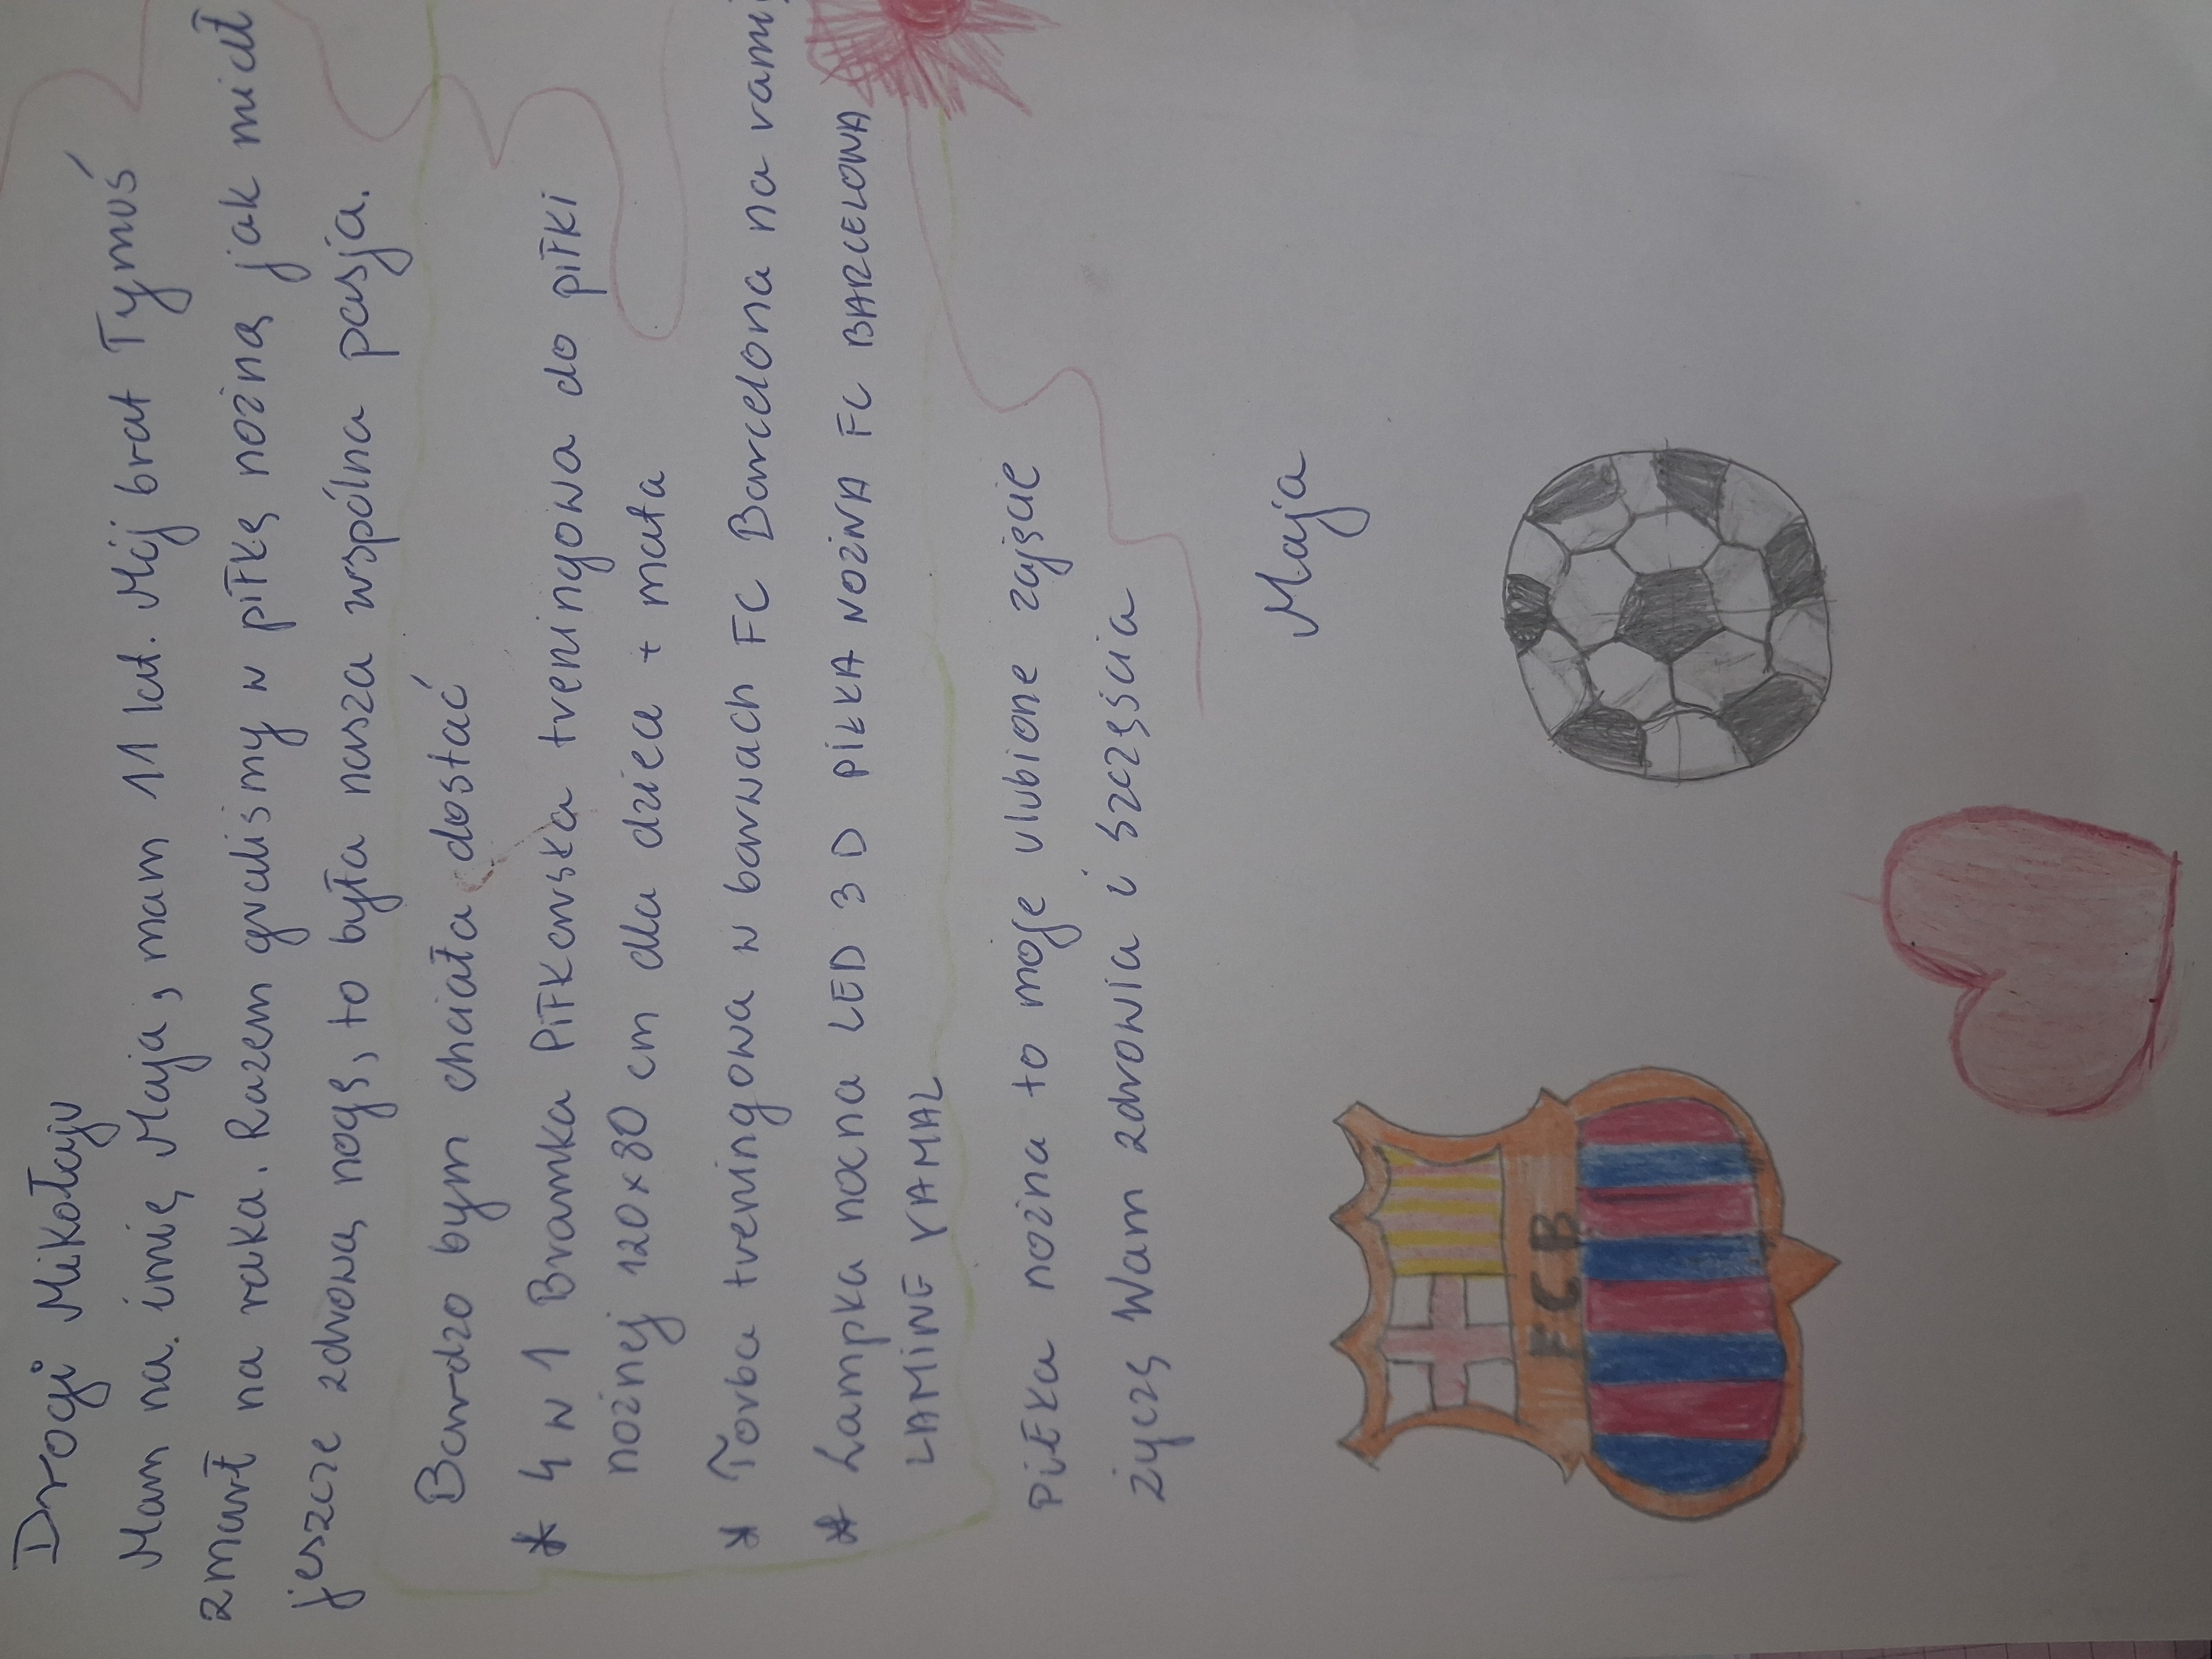 Drogi Mikołaju
Mam na imię Maja, mam 11 lat. Mój brat Tymuś
zmarł na raka. Razem graliśmy w piłkę nożną jak miał
jeszcze zdrową nogę, to była nasza wspólna pasja.
Bardzo bym chciała dostać
* 4 w 1 Bramka Piłkarska treningowa do piłki
nożnej 120x80 cm dla dzieci + mata
* Torba treningowa w barwach FC Barcelona na
* Lampka nocna LED 3D PIŁKA NOŻNA FC BARCELONA
LAMINE YAMAL
Piłka nożna to moje ulubione zajęcie
życzę Wam zdrowia i szczęścia
Maja
FCB